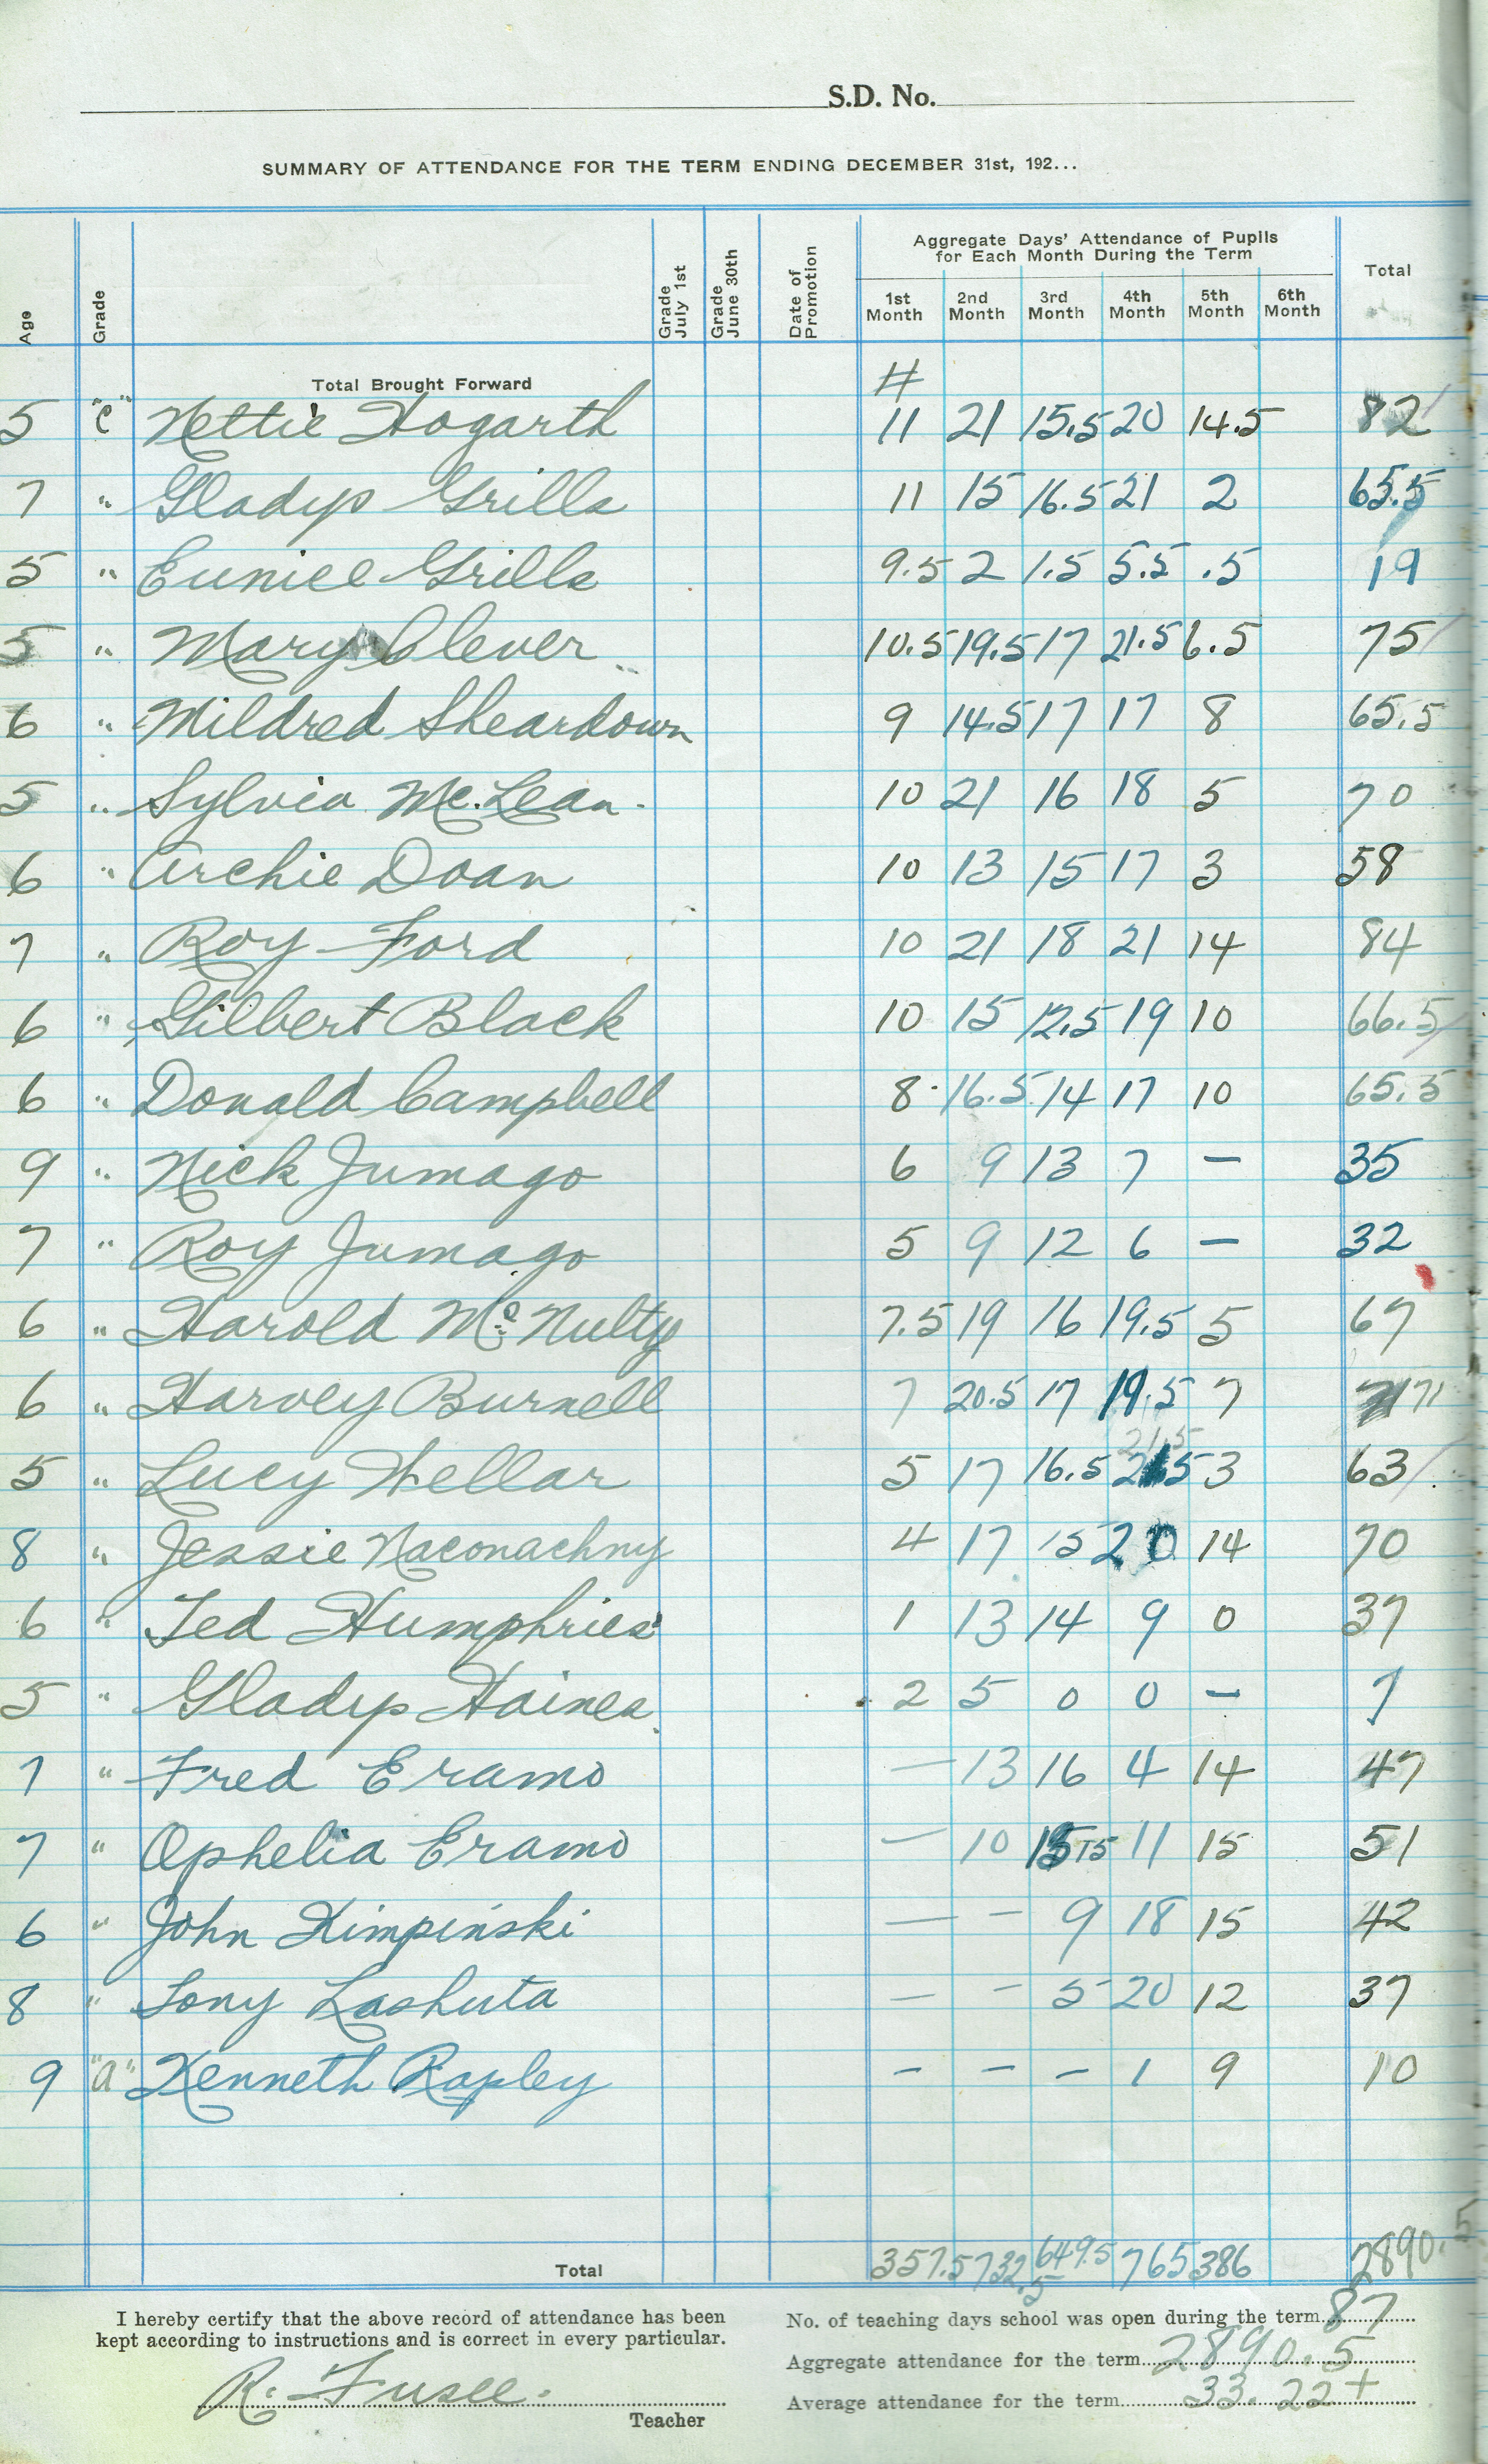 S.D. No.
SUMMARY OF ATTENDANCE FOR THE TERM ENDING DECEMBER 31st, 192...
Age Grade Grade July 1st Grade June 30th Date of Promotion Aggregate Days' Attendance of Pupils for Each Month During the Term Total
1st Month 2nd Month 3rd Month 4th Month 5th Month 6th Month
Total Brought Forward #
5 "c" Nettie Hogarth 11 21 15.5 20 14.5 82
7 " Gladys Grills 11 15 16.5 21 2 65.5
5 " Eunice Grills 9.5 2 1.5 5.5 .5 19
5 " Mary Clever 10.5 19.5 17 21.5 6.5 75
6 " Mildred Sheardown 9 14.5 17 17 8 65.5
5 " Sylvia McLean 10 21 16 18 5 70
6 " Archie Doan 10 13 15 17 3 58
7 " Roy Ford 10 21 18 21 14 84
6 " Gilbert Black 10 15 12.5 19 10 66.5
6 " Donald Campbell 8 16.5 14 17 10 65.5
9 " Nick Jumago 6 9 13 7 – 35
7 " Roy Jumago 5 9 12 6 – 32
6 " Harold McNulty 7.5 19 16 19.5 5 67
6 " Harvey Burnell 7 20.5 17 19.5 7 71
5 " Lucy Hellar 5 17 16.5 21.5 3 63
8 " Jessie Naconachny 4 17 15 20 14 70
6 " Ted Humphries 1 13 14 9 0 37
5 " Gladys Haines 2 5 0 0 – 7
7 " Fred Eramo – 13 16 4 14 47
7 " Ophelia Eramo – 10 15 11 15 51
6 " John Kimpinski – – 9 18 15 42
8 " Tony Lashuta – – 5 20 12 37
9 "a" Kenneth Rapley – – – 1 9 10
Total 357.5 732.5 649.5 765 386 2890.5
I hereby certify that the above record of attendance has been
kept according to instructions and is correct in every particular.
R. Fusee.
Teacher
No. of teaching days school was open during the term 87
Aggregate attendance for the term 2890.5
Average attendance for the term 33.22+